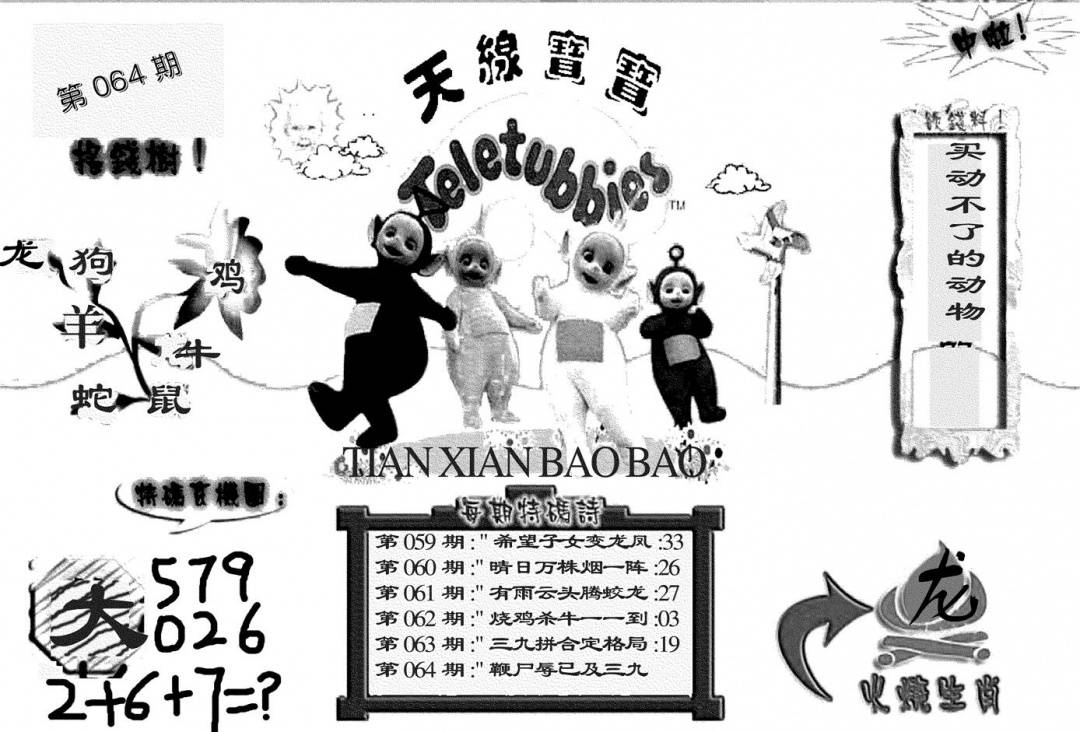 第 064 期
天線寶寶
中啦！
搖錢樹！
Teletubbies
TM
龙
狗
鸡
羊
牛
蛇
鼠
买动不了的动物
TIAN XIAN BAO BAO
特碼玄機圖：
大
579
026
2+6+7=?
每期特碼詩
第 059 期 :" 希望子女变龙凤 :33
第 060 期 :" 晴日万株烟一阵 :26
第 061 期 :" 有雨云头腾蛟龙 :27
第 062 期 :" 烧鸡杀牛一一到 :03
第 063 期 :" 三九拼合定格局 :19
第 064 期 :" 鞭尸辱已及三九
龙
火燒生肖